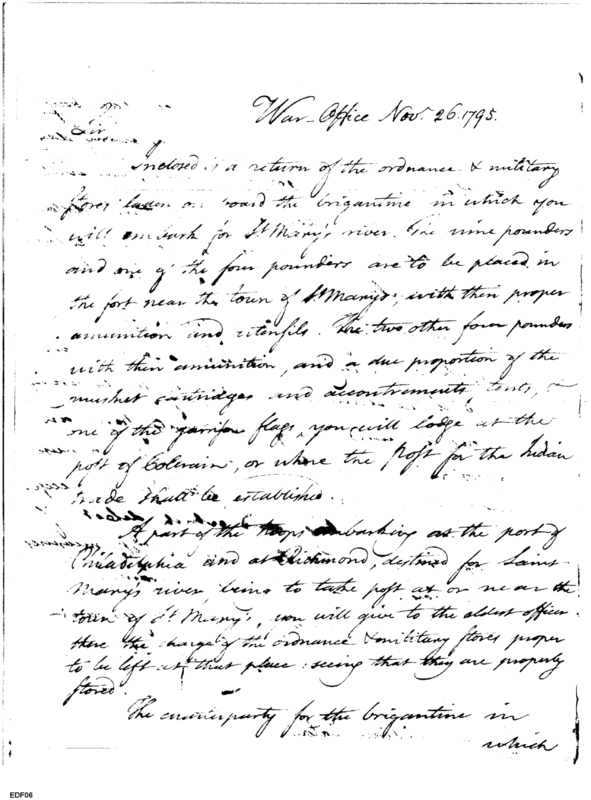 War-Office Nov. 26. 1795.
Sir
Inclosed is a return of the ordnance & military
stores laden on board the brigantine in which you
will embark for St. Mary's river. The nine pounders
and one of the four pounders are to be placed in
the fort near the town of St. Mary's, with their proper
amunition and utensils. The two other four pounders
with their amunition, and a due proportion of the
musket cartridges and accoutrements, tents, &
one of the garrison flags, you will lodge at the
post of Colerain, or where the Post for the Indian
trade shall be established.
A part of the troops embarking at the port of
Philadelphia and at Richmond, destined for Saint
Mary's river, being to take post at or near the
town of St. Mary's, you will give to the oldest officer
there the charge of the ordnance & military stores proper
to be left at that place: seeing that they are properly
stored.
The counterparty for the brigantine in
which
EDF06